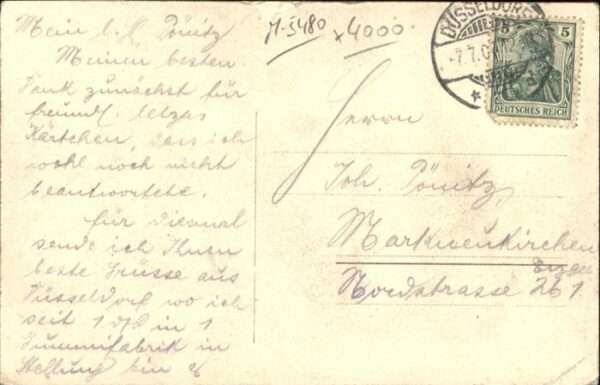 Mein l. H. Pönitz
Meinen besten
Dank zunächst für
freundl. letztes
Kärtchen, das ich
wohl noch nicht
beantwortete.
Für diesmal
sende ich Ihnen
beste Grüsse aus
Düsseldorf wo ich
seit 1 d/s in 1
Gummifabrik in
Stellung bin
J-5480
x 4000
DÜSSELDORF
7.7.0
5 5
DEUTSCHES REICH
Herrn
Joh. Pönitz,
Markneukirchen
Nordstrasse 261